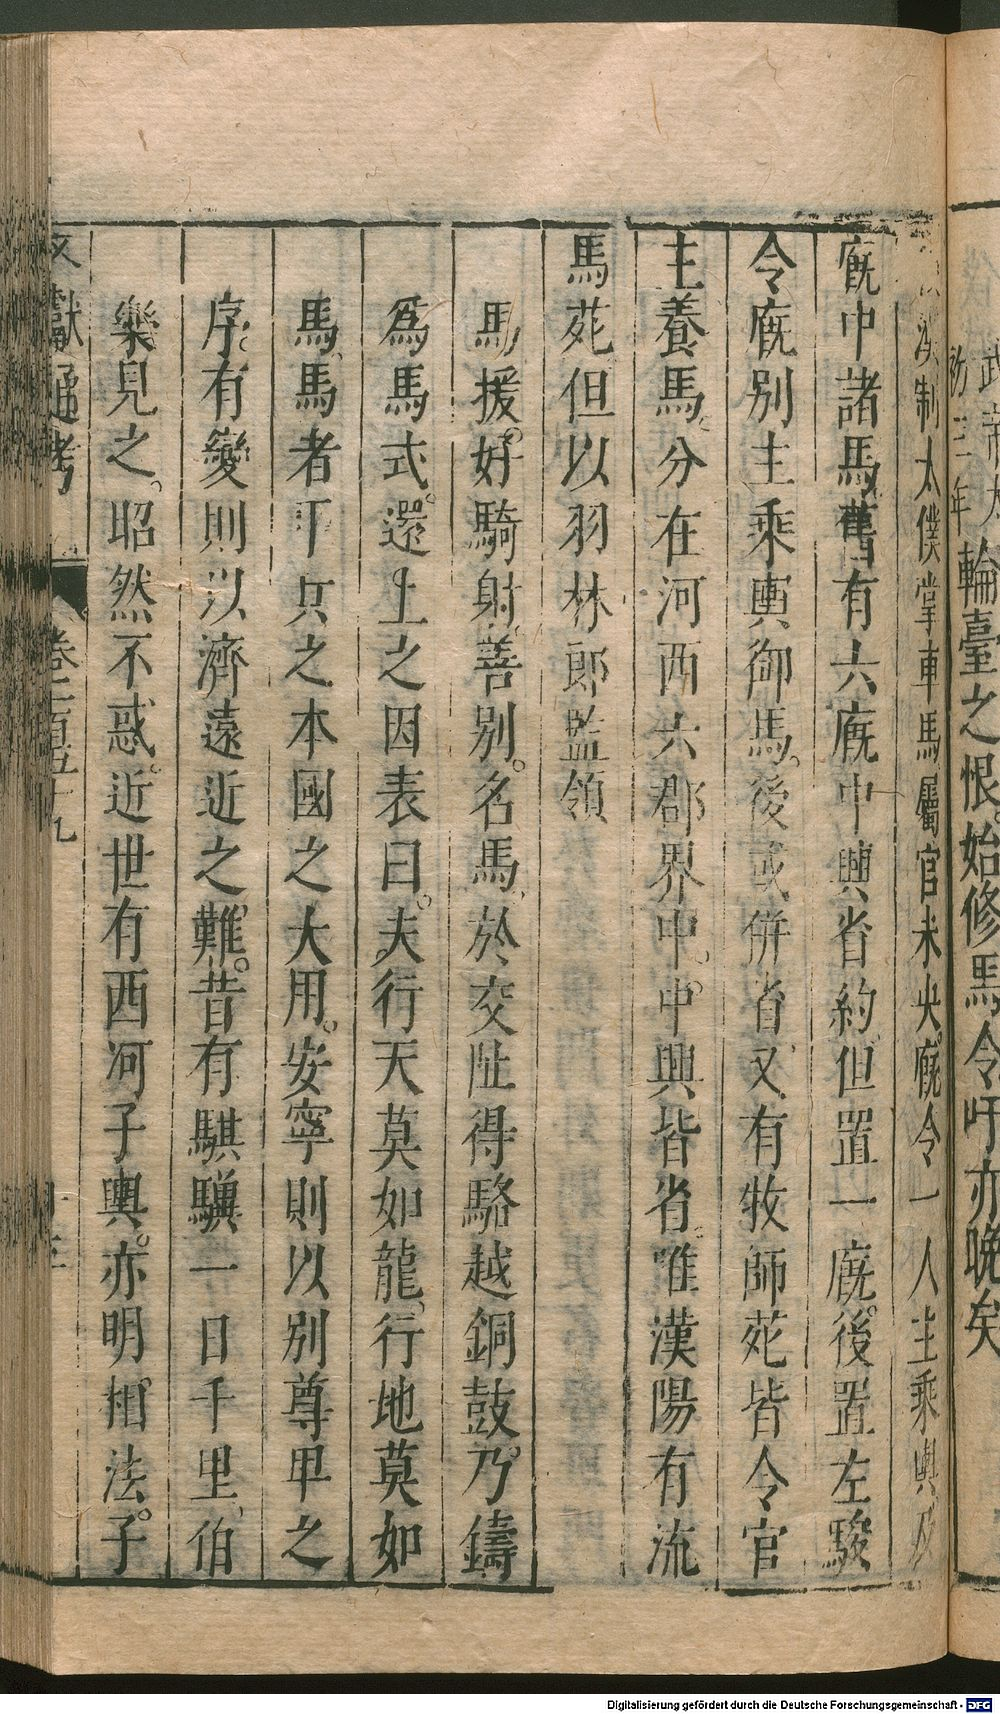 武帝太
初三年
輪臺之恨。始修馬令吁亦晚矣
漢制太僕掌車馬屬官未央廐令一人主乘輿及
廐中諸馬舊有六廐中興省約但置一廐。後置左駿
令廐别主乘輿御馬。後或併省又有牧師苑皆令官
主養馬。分在河西六郡界中。中興皆省。唯漢陽有流
馬苑但以羽林郎監領
馬援。好騎射。善别。名馬、於交阯得駱越銅鼓。乃鑄
爲馬式。還上之因表曰。夫行天莫如龍。行地莫如
馬、馬者甲兵之本國之大用。安寧則以别尊卑之
序。有變則以濟遠近之難。昔有騏驥一日千里、伯
樂見之。昭然不惑。近世有西河子輿。亦明相法。子
文獻通考 卷一百五十九
Digitalisierung gefördert durch die Deutsche Forschungsgemeinschaft - DFG